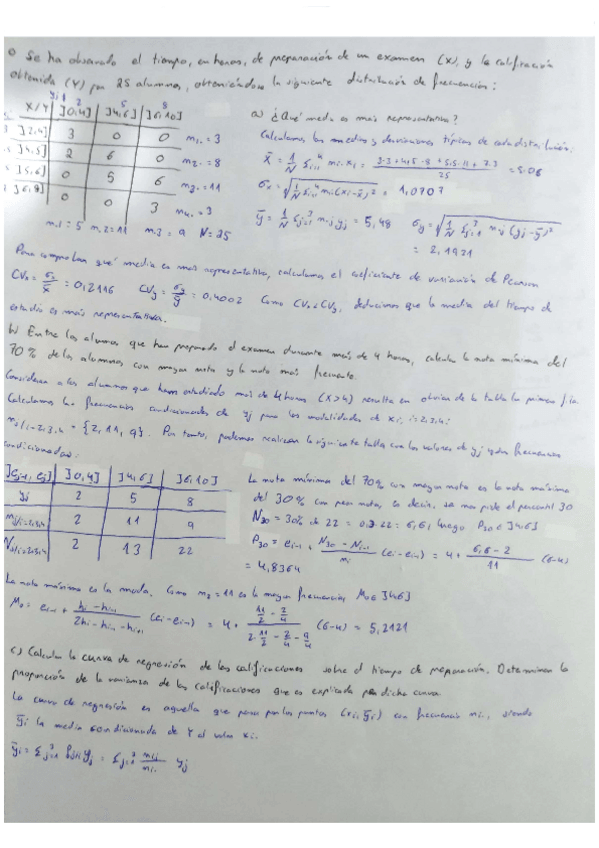 o Se ha observado el tiempo, en horas, de preparación de un examen (X), y la calificación
obtenida (Y) por 25 alumnos, obteniéndose la siguiente distribución de frecuencias:
yj 2 5 8
X/Y ]0,4] ]4,6] ]6,10]
]2,4] 3 0 0 m1. = 3
]4,5] 2 6 0 m2. = 8
]5,6] 0 5 6 m3. = 11
]6,8] 0 0 3 m4. = 3
m.1 = 5 m.2 = 11 m.3 = 9 N = 25
a) ¿Qué media es más representativa?
Calculamos las medias y desviaciones típicas de cada distribución:
x̄ = 1/N Σi=1^4 mi. xi = (3·3 + 4,5·8 + 5,5·11 + 7·3)/25 = 5.06
σx = √(1/N Σi=1^4 mi. (xi - x̄)²) = 1,0707
ȳ = 1/N Σj=1^3 m.j yj = 5,48 σy = √(1/N Σj=1^3 m.j (yj - ȳ)²)
= 2,1921
Para comprobar qué media es más representativa, calculamos el coeficiente de variación de Pearson
CVx = σx/x̄ = 0,2116 CVy = σy/ȳ = 0,4002 Como CVx < CVy, deducimos que la media del tiempo de
estudio es más representativa.
b) Entre los alumnos que han preparado el examen durante más de 4 horas, calcular la nota mínima del
70% de los alumnos con mayor nota y la nota más frecuente.
Considerar a los alumnos que han estudiado más de 4 horas (X>4) resulta en obviar de la tabla la primera fila.
Calculamos las frecuencias condicionadas de yj para las modalidades de xi, i=2,3,4:
mj/i=2,3,4 = {2, 11, 9}. Por tanto, podemos realizar la siguiente tabla con los valores de yj y sus frecuencias
condicionadas:
]ej-1, ej] ]0,4] ]4,6] ]6,10]
yj 2 5 8
mj/i=2,3,4 2 11 9
Nj/i=2,3,4 2 13 22
La nota mínima del 70% con mayor nota es la nota máxima
del 30% con peor nota, es decir, se nos pide el percentil 30
N30 = 30% de 22 = 0.3·22 = 6,6, luego P30 ∈ ]4,6]
P30 = ei-1 + (N30 - Ni-1)/mi (ei - ei-1) = 4 + (6,6 - 2)/11 (6-4)
= 4,8364
La nota máxima es la moda. Como m2 = 11 es la mayor frecuencia, Mo ∈ ]4,6]
Mo = ei-1 + (hi - hi-1)/(2hi - hi-1 - hi+1) (ei - ei-1) = 4 + (11/2 - 2/4)/(2·11/2 - 2/4 - 9/4) (6-4) = 5,2121
c) Calcular la curva de regresión de las calificaciones sobre el tiempo de preparación. Determinar la
proporción de la varianza de las calificaciones que es explicada por dicha curva.
La curva de regresión es aquella que pasa por los puntos (xi, ȳi) con frecuencia mi., siendo
ȳi la media condicionada de Y al valor xi.
ȳi = Σj=1^3 fj/i yj = Σj=1^3 mij/mi. yj